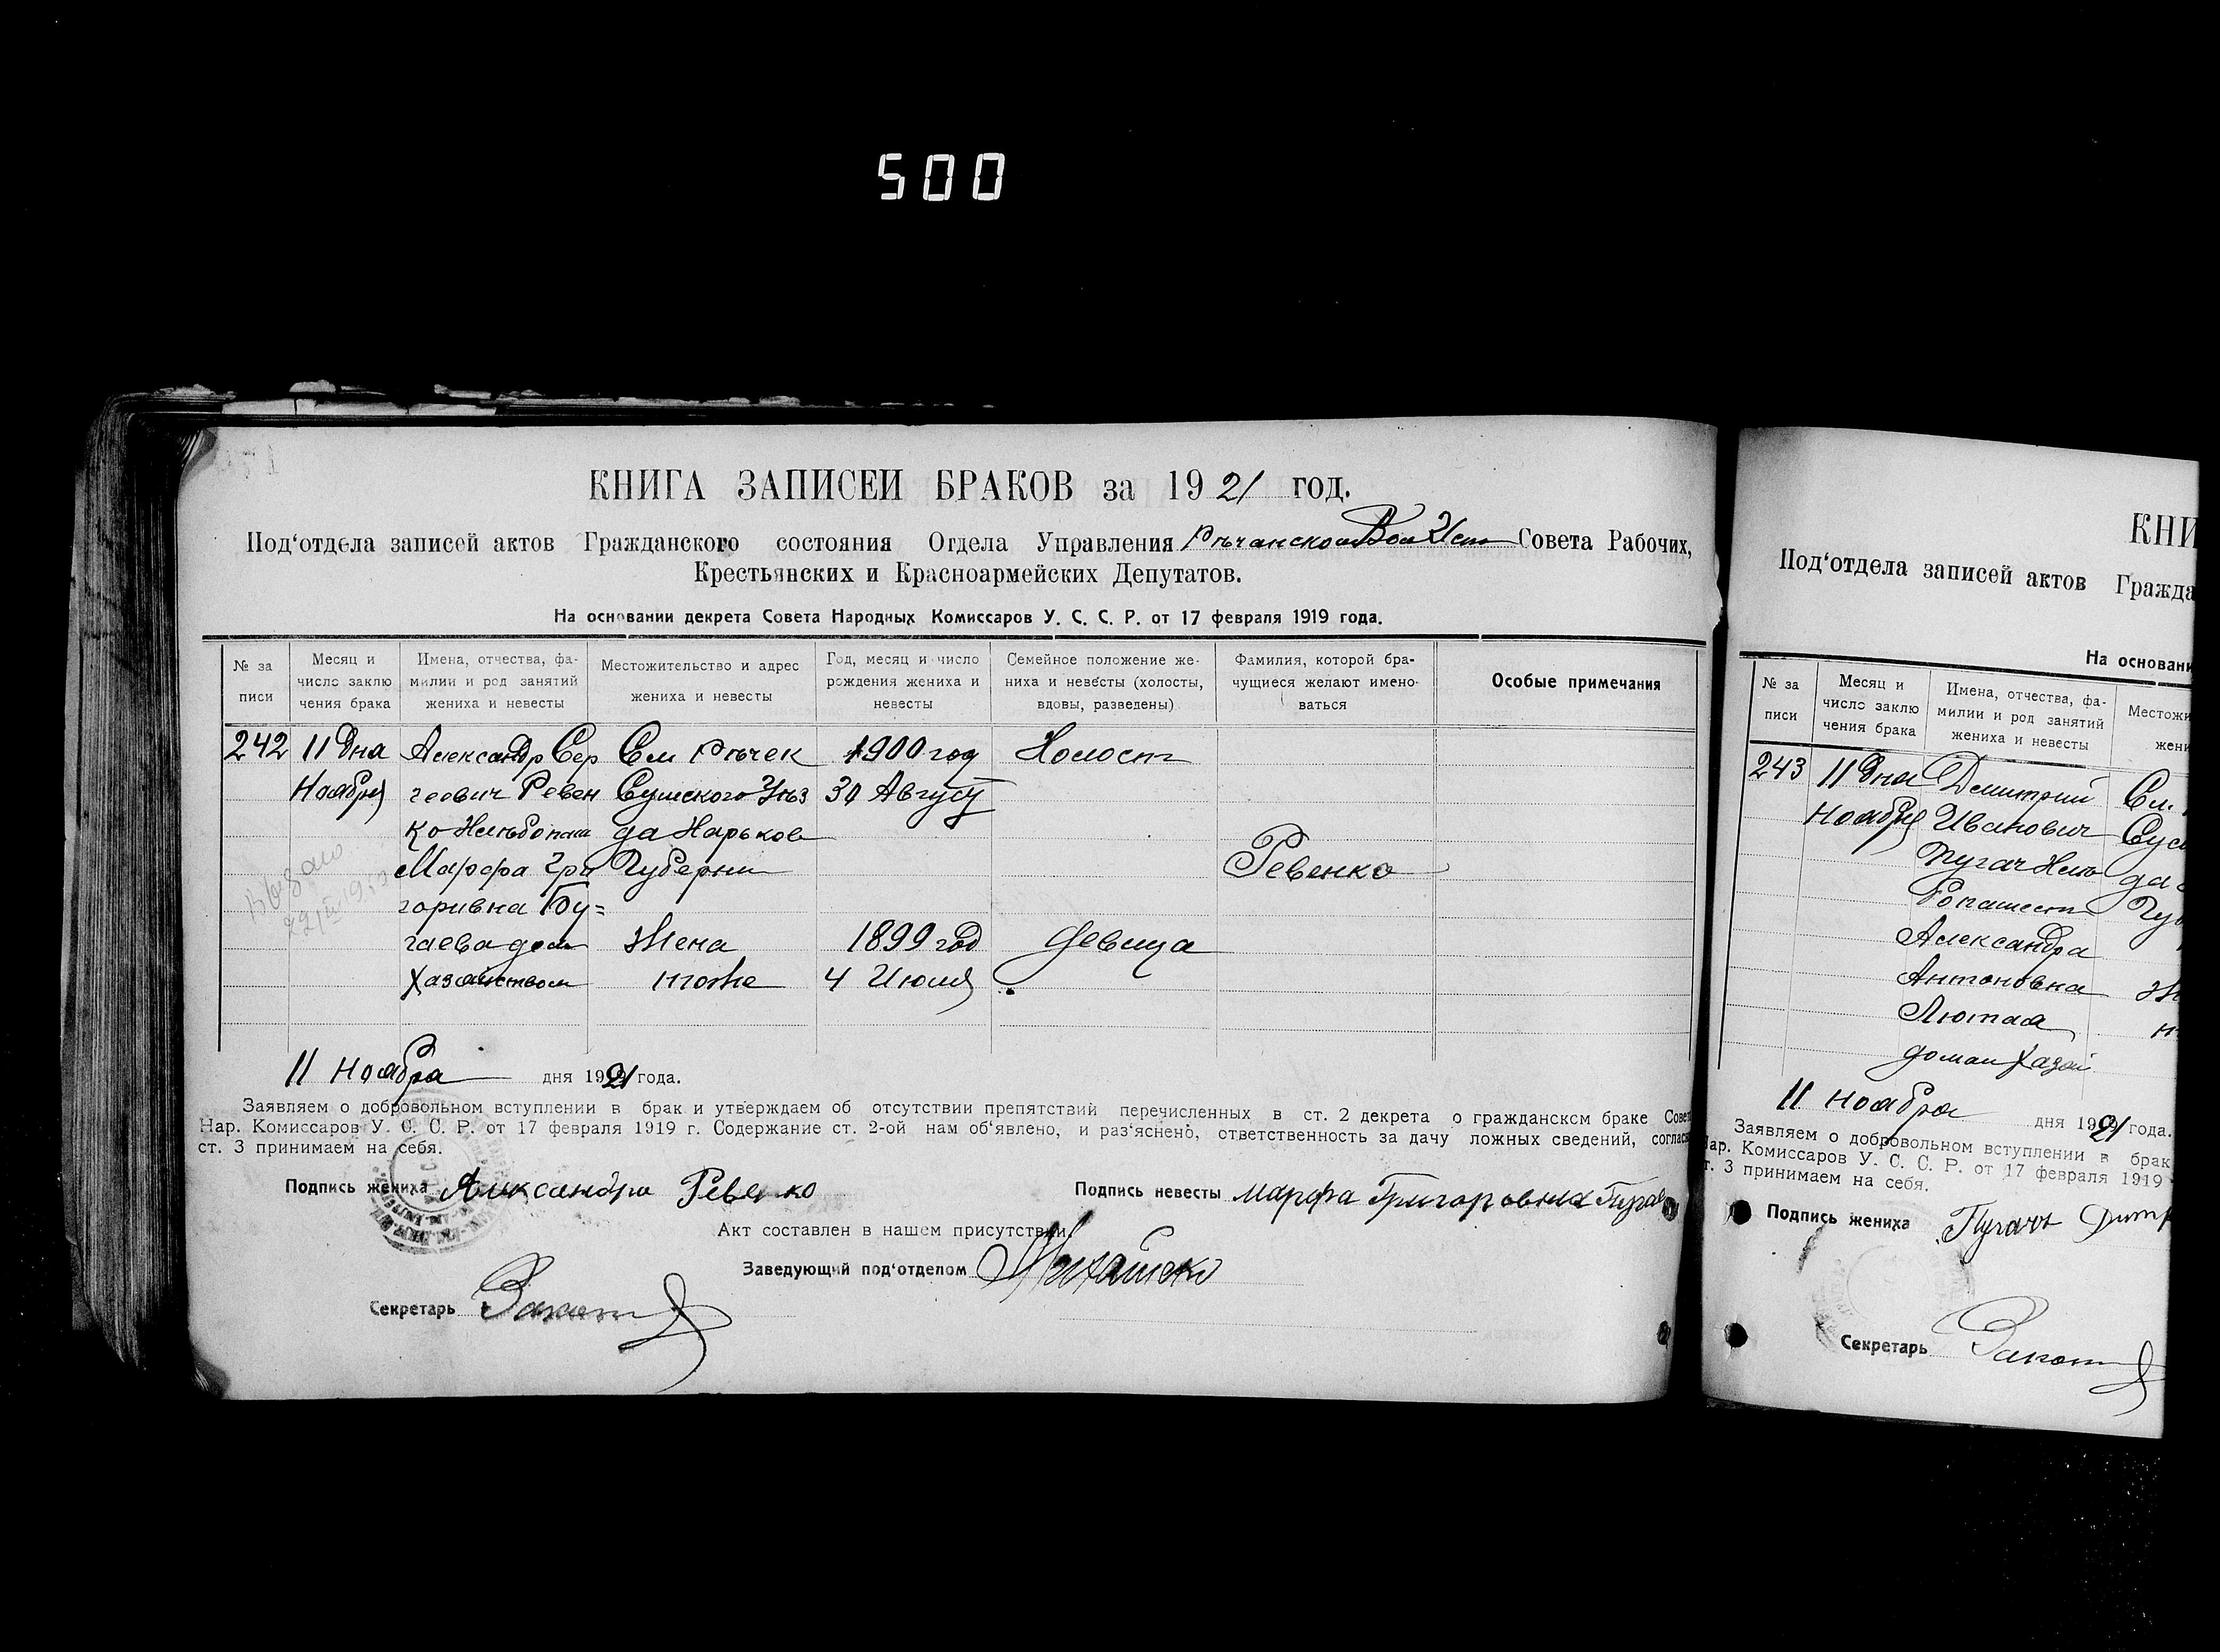 500
КНИГА ЗАПИСЕЙ БРАКОВ за 1921 год.
Под‘отдела записей актов Гражданского состояния Отдела Управления Рѣчанской Вол Исп Совета Рабочих,
Крестьянских и Красноармейских Депутатов.
На основании декрета Совета Народных Комиссаров У. С. С. Р. от 17 февраля 1919 года.
№ за писи
Месяц и число заклю чения брака
Имена, отчества, фа- милии и род занятий жениха и невесты
Местожительство и адрес жениха и невесты
Год, месяц и число рождения жениха и невесты
Семейное положение же- ниха и невесты (холосты, вдовы, разведены)
Фамилия, которой бра- чущиеся желают имено- ваться
Особые примечания
242 11 дня Александр Сер Сл Рѣчек 1900 год Холост
Ноября геевич Ревен Сумского Уѣз 30 Августу
ко Хлѣбопаш да Харьков
Марфа Гри Губерни Ревенко
горивна Бу=
гаева дом Жена 1899 год девица
Хазайством тоже 4 Июля
11 Ноября дня 1921 года.
Заявляем о добровольном вступлении в брак и утверждаем об отсутствии препятствий перечисленных в ст. 2 декрета о гражданском браке Совет
Нар. Комиссаров У. С. С. Р. от 17 февраля 1919 г. Содержание ст. 2-ой нам об‘явлено, и раз‘яснено, ответственность за дачу ложных сведений, соглас
ст. 3 принимаем на себя.
Подпись жениха Александра Ревенко Подпись невесты Марфа Григоровна
Акт составлен в нашем присутствии.
Заведующий под‘отделом
Секретарь
КНИ
Под‘отдела записей актов Гражда
На основани
№ за писи
Месяц и число заклю чения брака
Имена, отчества, фа- милии и род занятий жениха и невесты
Местожи жени
243 11 дня Дмитрий Сл.
Ноября Иванович Сум
Пугач Хле да
бопашест Губ
Александра
Антоновна Же
Лютая т
домаш Хазай
11 Ноября дня 1921 года.
Заявляем о добровольном вступлении в брак
Нар. Комиссаров У. С. С. Р. от 17 февраля 1919
ст. 3 принимаем на себя.
Подпись жениха Пугачь Дмитр
Секретарь